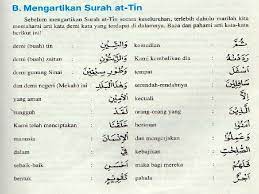 B. Mengartikan Surah at-Tin
Sebelum mengartikan Surah at-Tin secara keseluruhan, terlebih dahulu marilah kita
memahami arti kata demi kata yang terdapat di dalamnya. Baca dan pahami arti kata-kata
berikut ini!
demi (buah) tin وَالتِّيْنِ kemudian ثُمَّ
demi (buah) zaitun وَالزَّيْتُوْنِ Kami kembalikan dia رَدَدْنٰهُ
demi gunung Sinai وَطُوْرِ سِيْنِيْنَ tempat أَسْفَلَ
dan demi negeri (Mekah) ini وَهٰذَا الْبَلَدِ serendah-rendahnya سَافِلِيْنَ
yang aman الْأَمِيْنِ kecuali إِلَّا
sungguh لَقَدْ orang-orang yang الَّذِيْنَ
Kami telah menciptakan خَلَقْنَا beriman آمَنُوْا
manusia الْإِنْسَانَ dan mengerjakan وَعَمِلُوا
dalam فِيْ kebajikan الصّٰلِحٰتِ
sebaik-baik أَحْسَنِ maka bagi mereka فَلَهُمْ
bentuk تَقْوِيْمٍ pahala أَجْرٌ